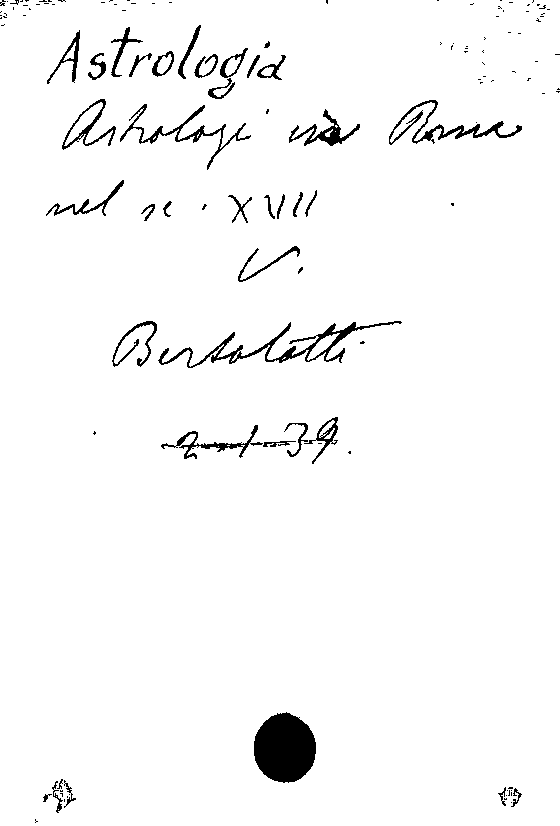 Astrologia
Astrologi in Roma
nel se. XVII
V.
Bertolotti
2-1-39.